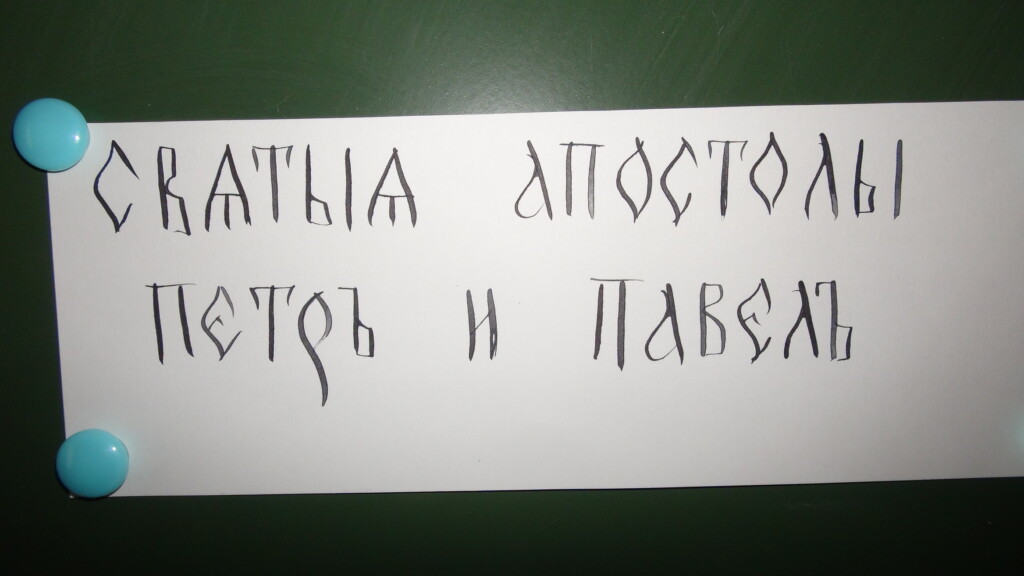 свѧтыѧ апостолы
петръ и павелъ